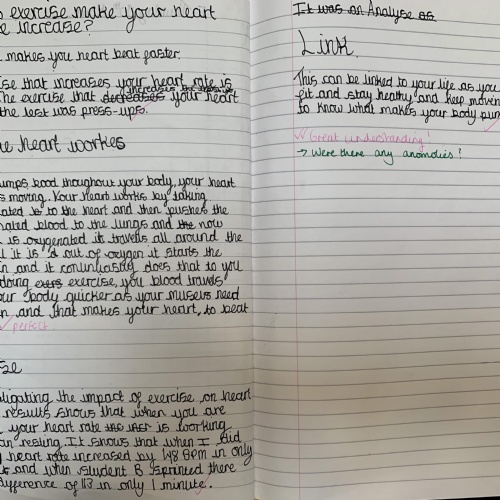 exercise make your heart
increase?
makes you heart beat faster.
ise that increases your heart rate is
increases the
he exercise that decreases your heart
the lest was press-ups.
he heart workes
umps bood thoughout your body, your heart
s moving. Your heart works by taking
nated to the heart and then pushes the
nated blood to the lungs and the now
is oxygenated it travells all around the
it is out of oxygen it starts the
n and it continuiasly does that to you
doing exers exercise, you blood travels
our body quicker as your musels need
n and that makes your heart, to beat
perfect
se
stigating the impact of exercise on heart
results shows that when you are
your heart rate is working
an resting. It shows that when I did
heart rate increased by 148 BPM in only
and when student B sprinted there
difference of 113 in only 1 minute.
It was an Analyse as
Link
This can be linked to your life as you
fit and stay healthy and keep moving
to know what makes your body pum
Great understanding!
→ Were there any anomolies?